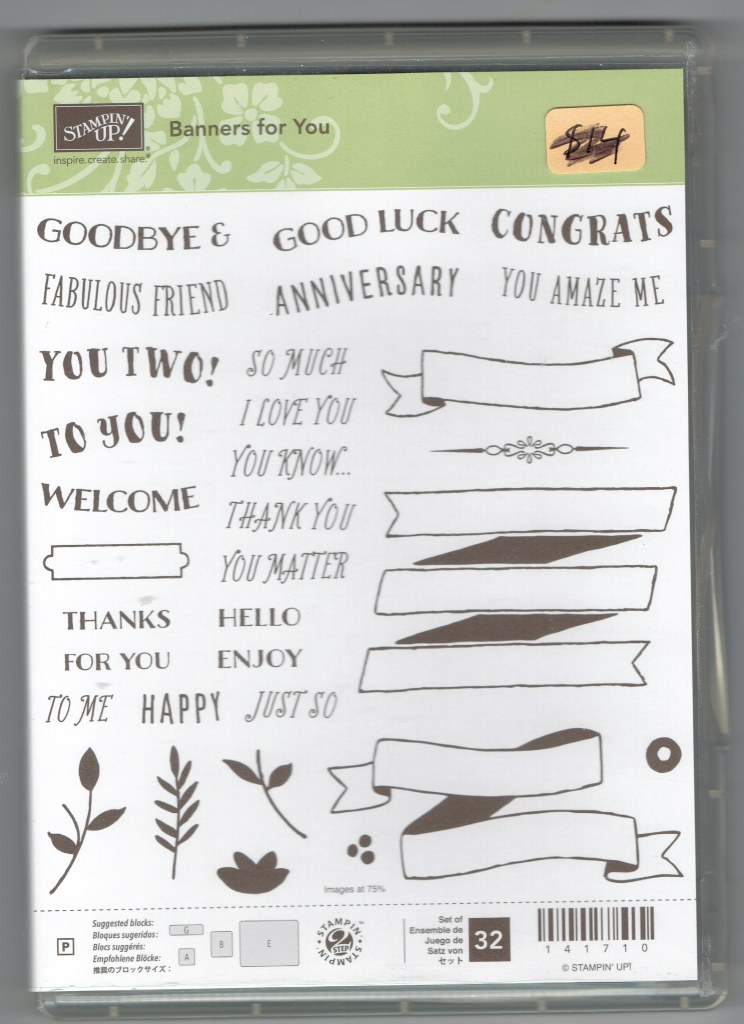 STAMPIN' UP!
inspire.create.share.®
Banners for You
$14
GOODBYE & GOOD LUCK CONGRATS
FABULOUS FRIEND ANNIVERSARY YOU AMAZE ME
YOU TWO! SO MUCH
I LOVE YOU
TO YOU!
YOU KNOW...
WELCOME
THANK YOU
YOU MATTER
THANKS HELLO
FOR YOU ENJOY
TO ME HAPPY JUST SO
Images at 75%
P
Suggested blocks:
Bloques sugeridos:
Blocs suggérés:
Empfohlene Blöcke:
推奨のブロックサイズ：
G
A
B
E
STAMPIN' • STAMPIN' •
2 STEP
Set of
Ensemble de
Juego de
Satz von
セット
32
1 4 1 7 1 0
© STAMPIN' UP!